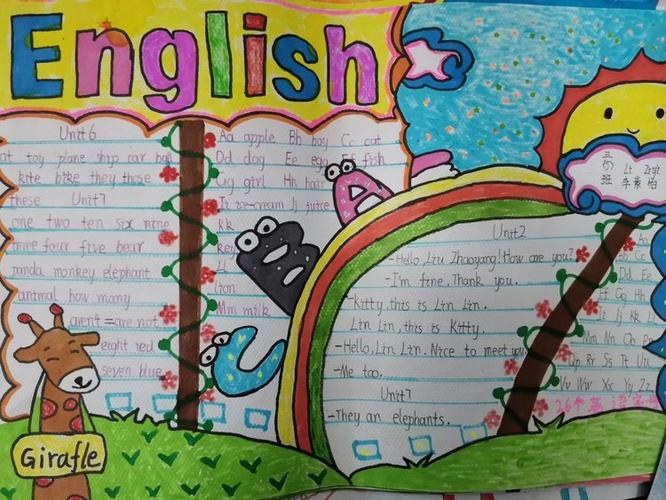 English
Unit6
at toy plane ship car ball
kite bike they those
these Unit7
one two ten six nine
three four five bear
panda monkey elephant
animal how many
aren't=are not
eight red
seven blue
Aa apple Bb boy Cc cat
Dd dog Ee egg Ff fish
Gg girl Hh hair
Ii ice-cream Jj juice
Kk
key
Ll
lion
Mm milk
A
B
C
Unit2
-Hello, Liu Zhaoyang! How are you?
-I'm fine. Thank you.
-Kitty, this is Lin Lin.
Lin Lin, this is Kitty.
-Hello, Lin Lin. Nice to meet you.
-Me too.
Unit7
-They an elephants.
班
Aa
Bb Cc
Dd Ee
Ff Gg Hh
Ii Jj Kk Ll
Mm Nn Oo Pp
Qq Rr Ss Tt Uu
Vv Ww Xx Yy Zz
26个英语字母
Girafle